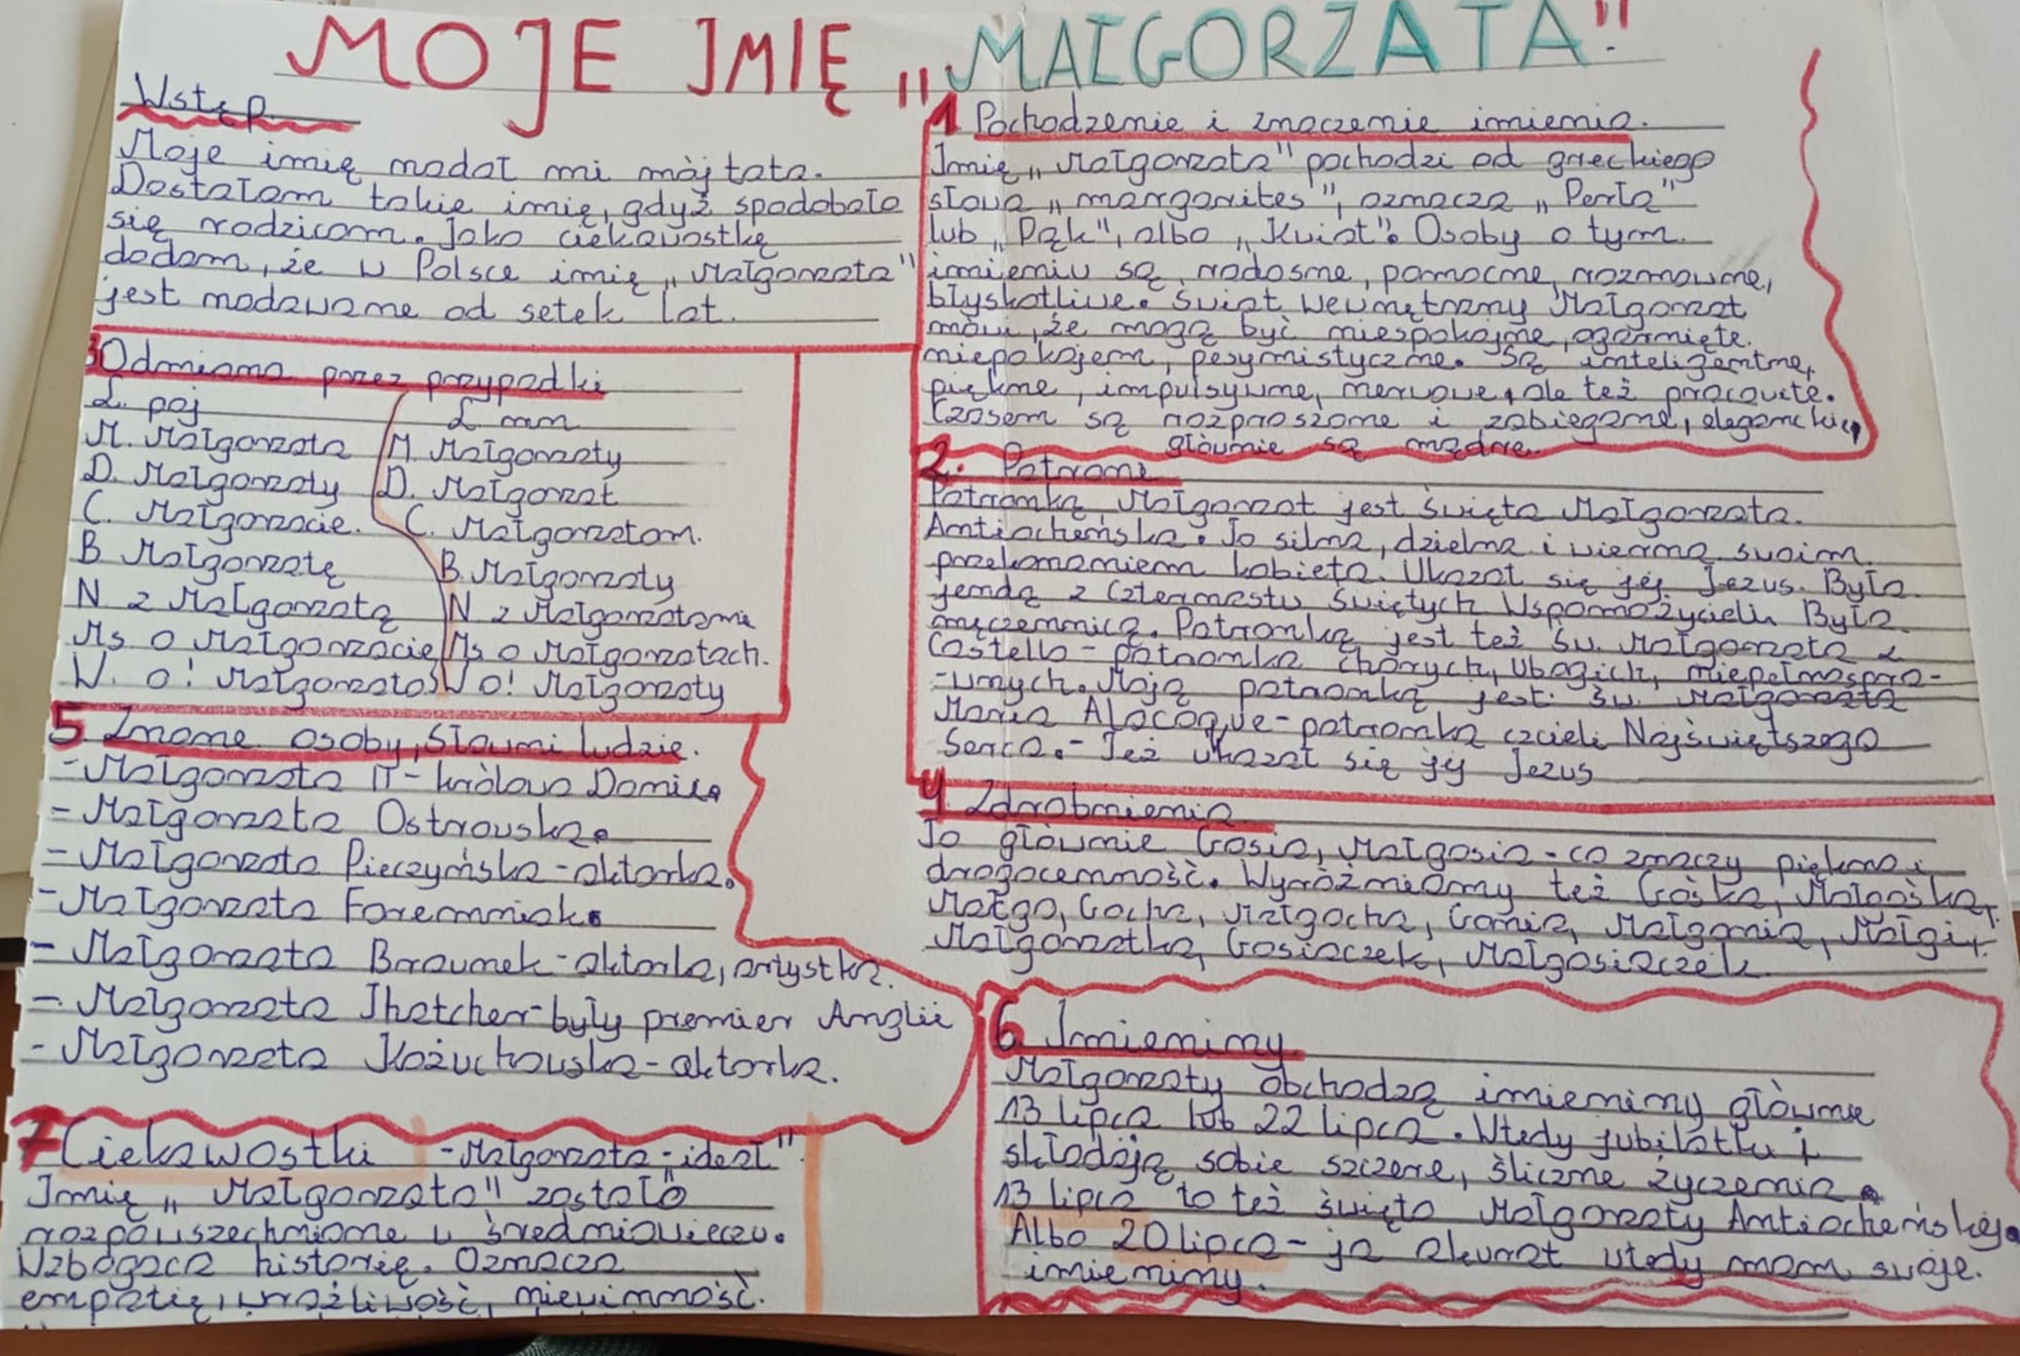 MOJE IMIĘ „MAŁGORZATA"
Wstęp
Moje imię nadał mi mój tata.
Dostałam takie imię, gdyż spodobało
się rodzicom. Jako ciekawostkę
dodam, że w Polsce imię „Małgorzata"
jest nadawane od setek lat.
1. Pochodzenie i znaczenie imienia.
Imię „Małgorzata" pochodzi od greckiego
słowa „margarites", oznacza „Perła"
lub „Pąk", albo „Kwiat". Osoby o tym
imieniu są radosne, pomocne, rozmowne,
błyskotliwe. Świat wewnętrzny Małgorzat
mówi, że mogą być niespokojne, ogarnięte
niepokojem, pesymistyczne. Są inteligentne,
piękne, impulsywne, nerwowe, ale też pracowite.
Czasem są rozproszone i zabiegane, eleganckie,
głównie są mądre.
2. Patroni
Patronką Małgorzat jest Święta Małgorzata
Antiocheńska. To silna, dzielna i wierna swoim
przekonaniem kobieta. Ukazał się jej Jezus. Była
jendą z Czternastu Świętych Wspomożycieli. Była
męczennicą. Patronką jest też Św. Małgorzata z
Costello - patronka chorych, ubogich, niepełnospra-
-wnych. Moją patronką jest: Św. Małgorzata
Maria Alacoque - patronka czcieli Najświętszego
Serca. - Też ukazał się jej Jezus
3 Odmiana przez przypadki
L. poj
L. mn
M. Małgorzata M. Małgorzaty
D. Małgorzaty D. Małgorzat
C. Małgorzacie. C. Małgorzatom.
B Małgorzatę B. Małgorzaty
N z Małgorzatą N z Małgorzatami
Ms o Małgorzacie Ms o Małgorzatach.
W. o! Małgorzato W o! Małgorzaty
4. Zdrobnienia
To głównie Gosia, Małgosia - co znaczy piękno i
drogocenność. Wyróżniamy też Gośka, Małgośka,
Małgo, Gocha, Małgocha, Gonia, Małgonia, Małgi,
Małgorzatka, Gosiaczek, Małgosiaczek
5 Znane osoby, sławni ludzie.
- Małgorzata II - królowa Danii.
- Małgorzata Ostrowska.
- Małgorzata Pieczyńska - aktorka.
- Małgorzata Foremniak.
- Małgorzata Braunek - aktorka, artystka.
- Małgorzata Thatcher - były premier Anglii
- Małgorzata Kożuchowska - aktorka.
6 Imieniny
Małgorzaty obchodzą imieniny głównie
13 lipca lub 22 lipca. Wtedy jubilatki
składają sobie szczere, śliczne życzenia.
13 lipca to też święto Małgorzaty Antiocheńskiej.
Albo 20 lipca - ja akurat wtedy mam swoje
imieniny.
7 Ciekawostki - Małgorzata - ideał"
Imię „Małgorzata" zostało
rozpowszechnione w średniowieczu.
Wzbogaca historię. Oznacza
empatię, wrażliwość, niewinność.